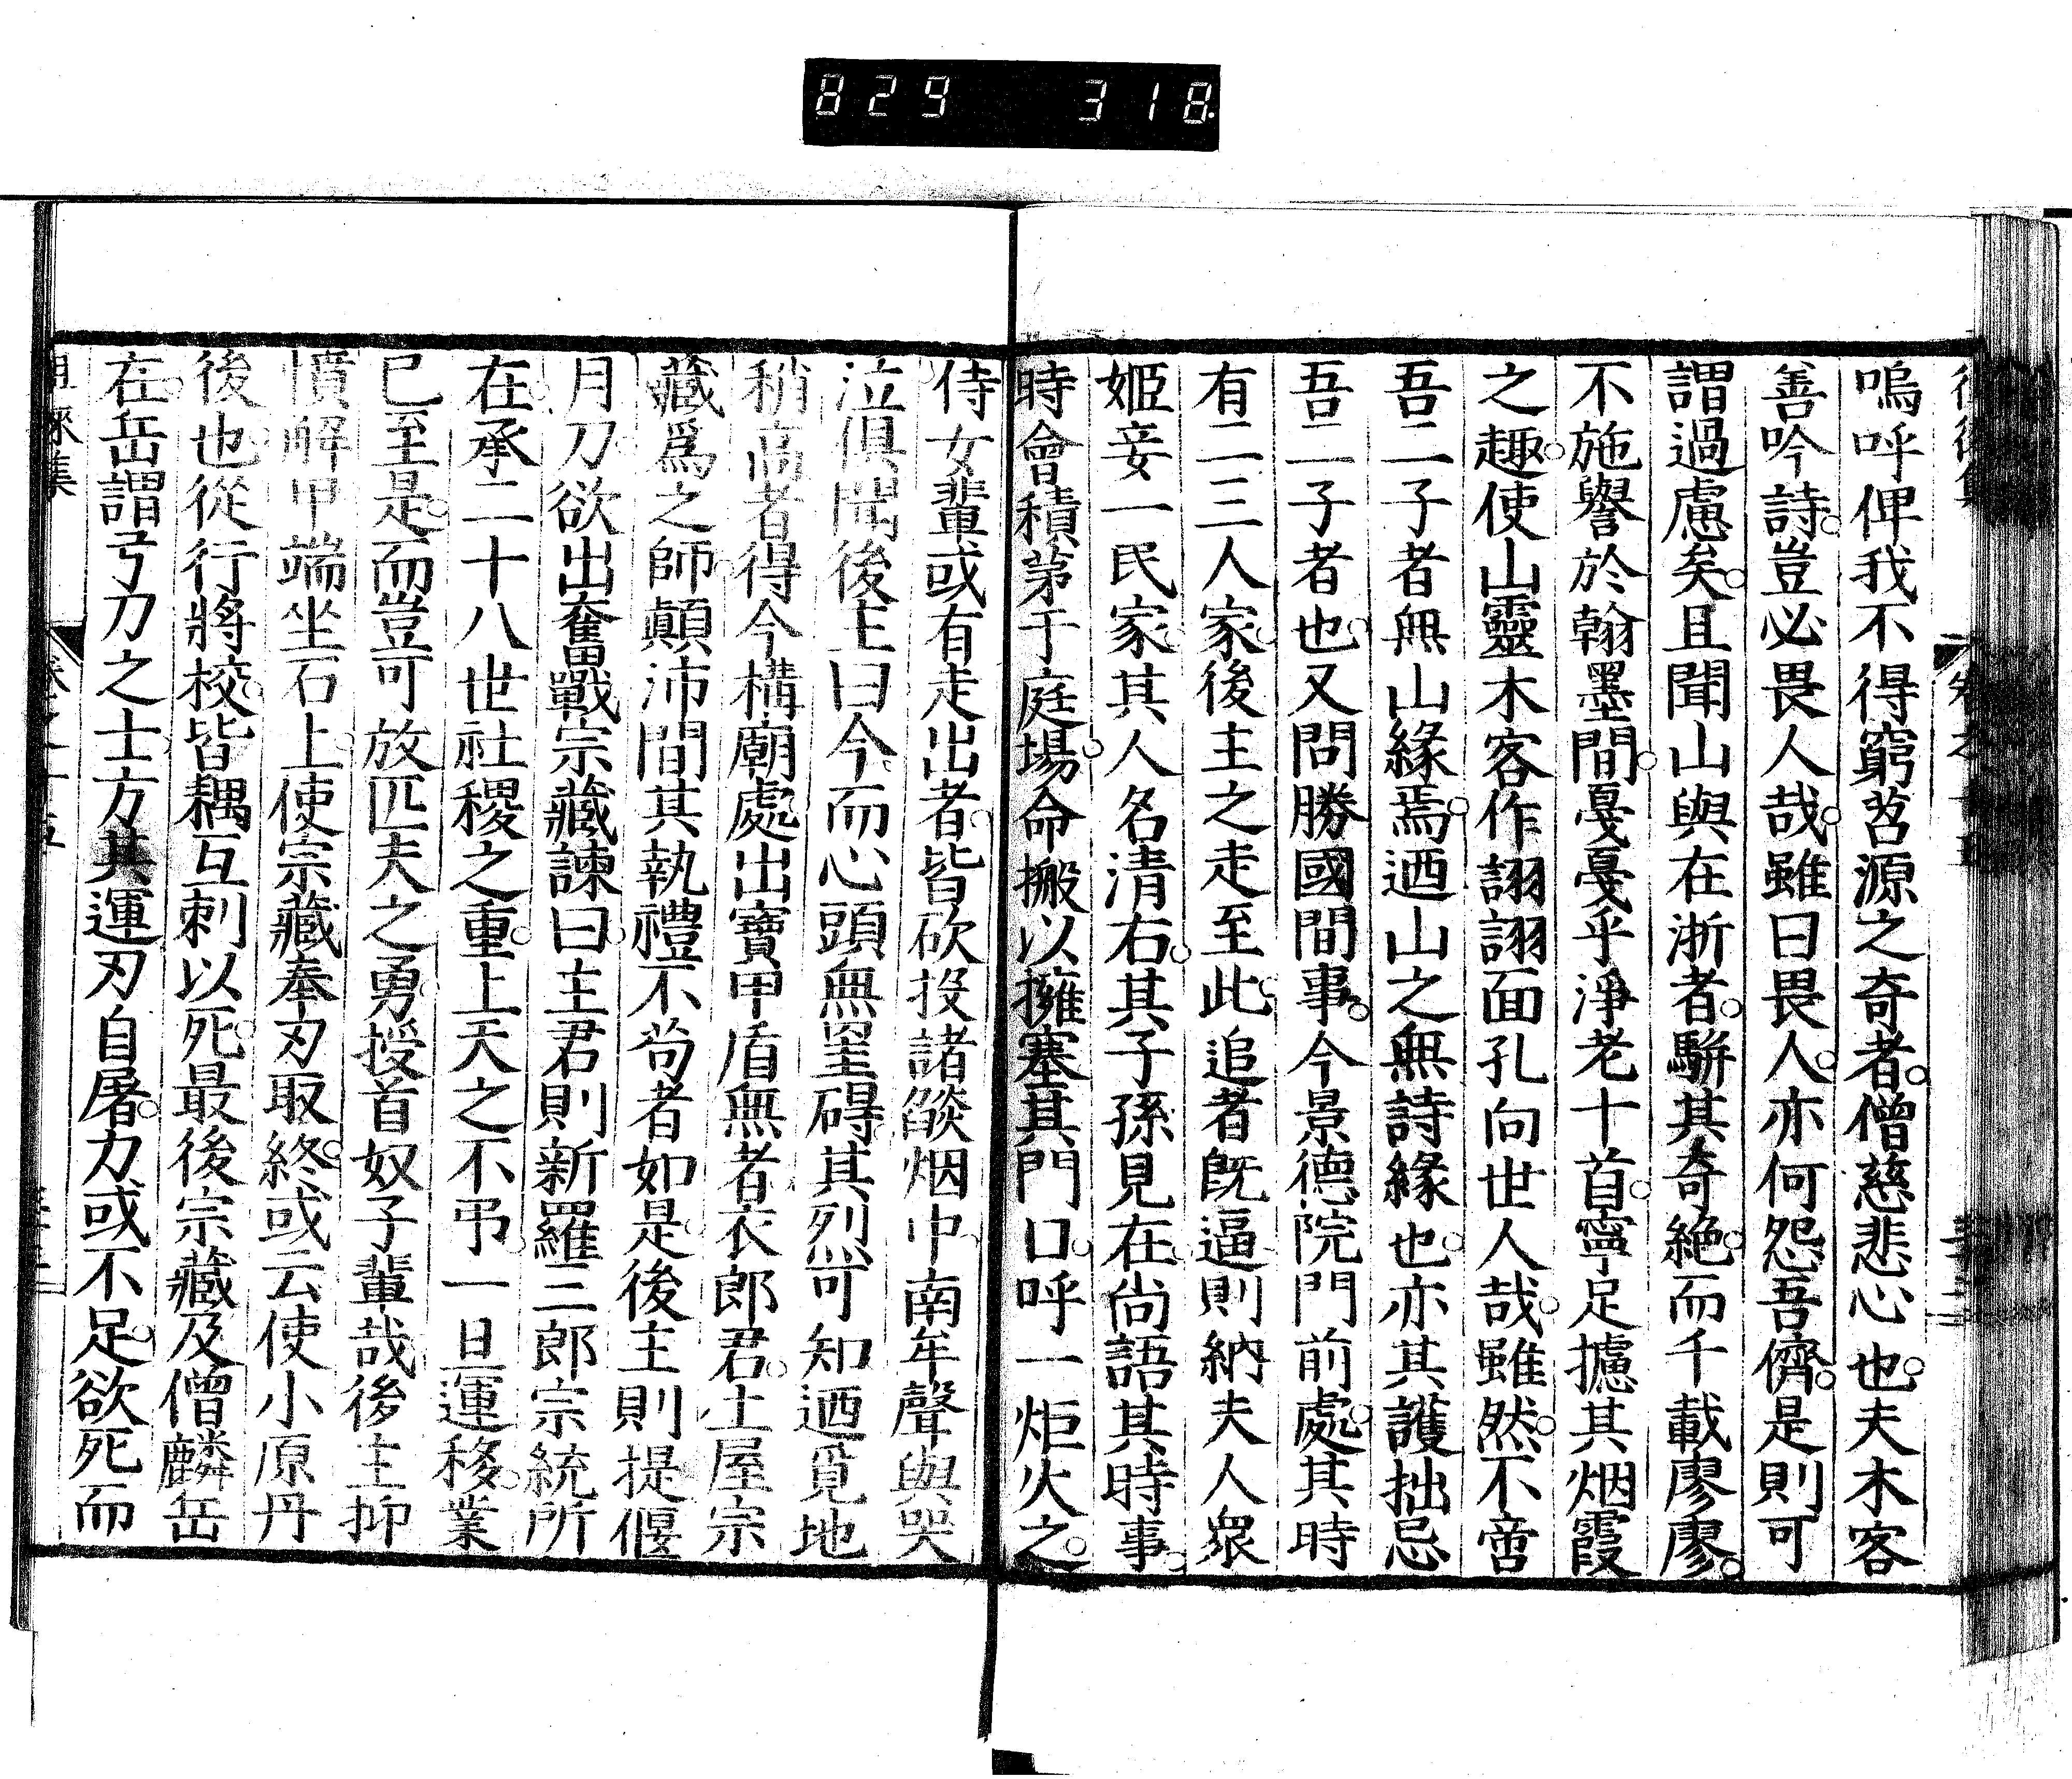 829 318.
嗚呼俾我不得窮茗源之奇者。僧慈悲心也。夫木客
善吟詩。豈必畏人哉。雖曰畏人。亦何怨吾儕。是則可
謂過慮矣。且聞山與在浙者。駢其奇絶。而千載廖廖。
不施譽於翰墨間。戞戞乎淨老十首。寧足攄其烟霞
之趣。使山靈木客作詡詡面孔向世人哉。雖然。不啻
吾二子者無山緣焉。迺山之無詩緣也。亦其護拙忌
吾二子者也。又問勝國間事。今景德院門前處。其時
有二三人家。後主之走至此。追者既逼。則納夫人衆
姬妾一民家。其人名清右。其子孫見在。尚語其時事。
時會積茅于庭場。命搬以擁塞其門口。呼一炬火之。
侍女輩或有走出者。皆砍投諸燄烟中。南牟聲與哭
泣俱聞。後主曰今而心頭無罣碍。其烈可知。迺覓地
稍高者得今構廟處。出寶甲盾無者衣郎君。土屋宗
藏爲之師。顚沛間其執禮不苟者如是。後主則提偃
月刀。欲出奮戰。宗藏諫曰。主君則新羅三郎宗統所
在。承二十八世社稷之重。上天之不弔。一旦運移。業
已至是。而豈可放匹夫之勇。授首奴子輩哉。後主抑
憤解甲。端坐石上。使宗藏奉刃取終。或云使小原丹
後也。從行將校。皆耦互刺以死。最後宗藏及僧麟岳
在。岳謂弓刀之士。方其運刃自屠。力或不足。欲死而
徂徠集 卷之十五